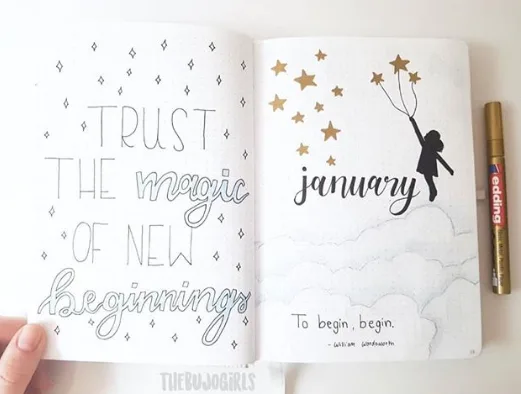 TRUST
THE magic
OF NEW
beginnings
january
To begin, begin.
- William Wordsworth
edding
THEBUJOGIRLS